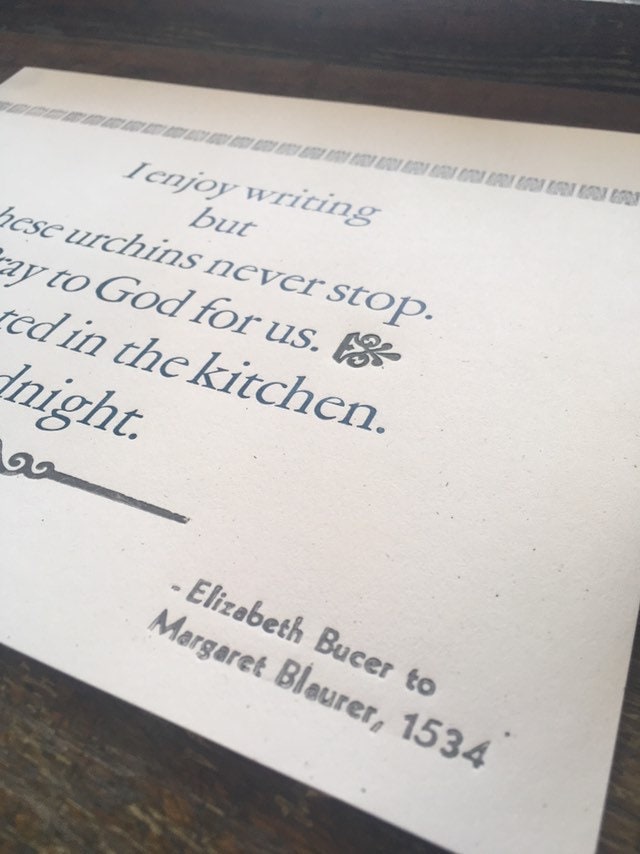 I enjoy writing
but
hese urchins never stop.
ray to God for us.
ted in the kitchen.
dnight.
- Elizabeth Bucer to
Margaret Blaurer, 1534